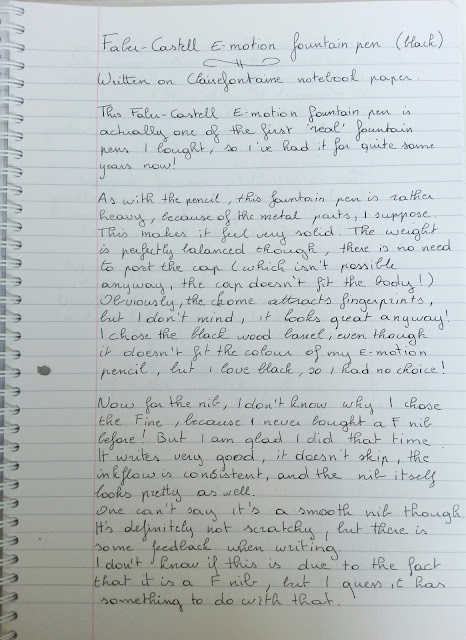 Faber-Castell E-motion fountain pen (black)
Written on Clairefontaine notebook paper.
This Faber-Castell E-motion fountain pen is
actually one of the first 'real' fountain
pens I bought, so I've had it for quite some
years now!
As with the pencil, this fountain pen is rather
heavy, because of the metal parts, I suppose.
This makes it feel very solid. The weight
is perfectly balanced though, there is no need
to post the cap (which isn't possible
anyway, the cap doesn't fit the body!)
Obviously, the chrome attracts fingerprints,
but I don't mind, it looks great anyway!
I chose the black wood barrel, even though
it doesn't fit the colour of my E-motion
pencil, but I love black, so I had no choice!
Now for the nib, I don't know why I chose
the Fine, because I never bought a F nib
before! But I am glad I did that time.
It writes very good, it doesn't skip, the
inkflow is consistent, and the nib itself
looks pretty as well.
One can't say it's a smooth nib though.
It's definitely not scratchy, but there is
some feedback when writing.
I don't know if this is due to the fact
that it is a F nib, but I guess it has
something to do with that.